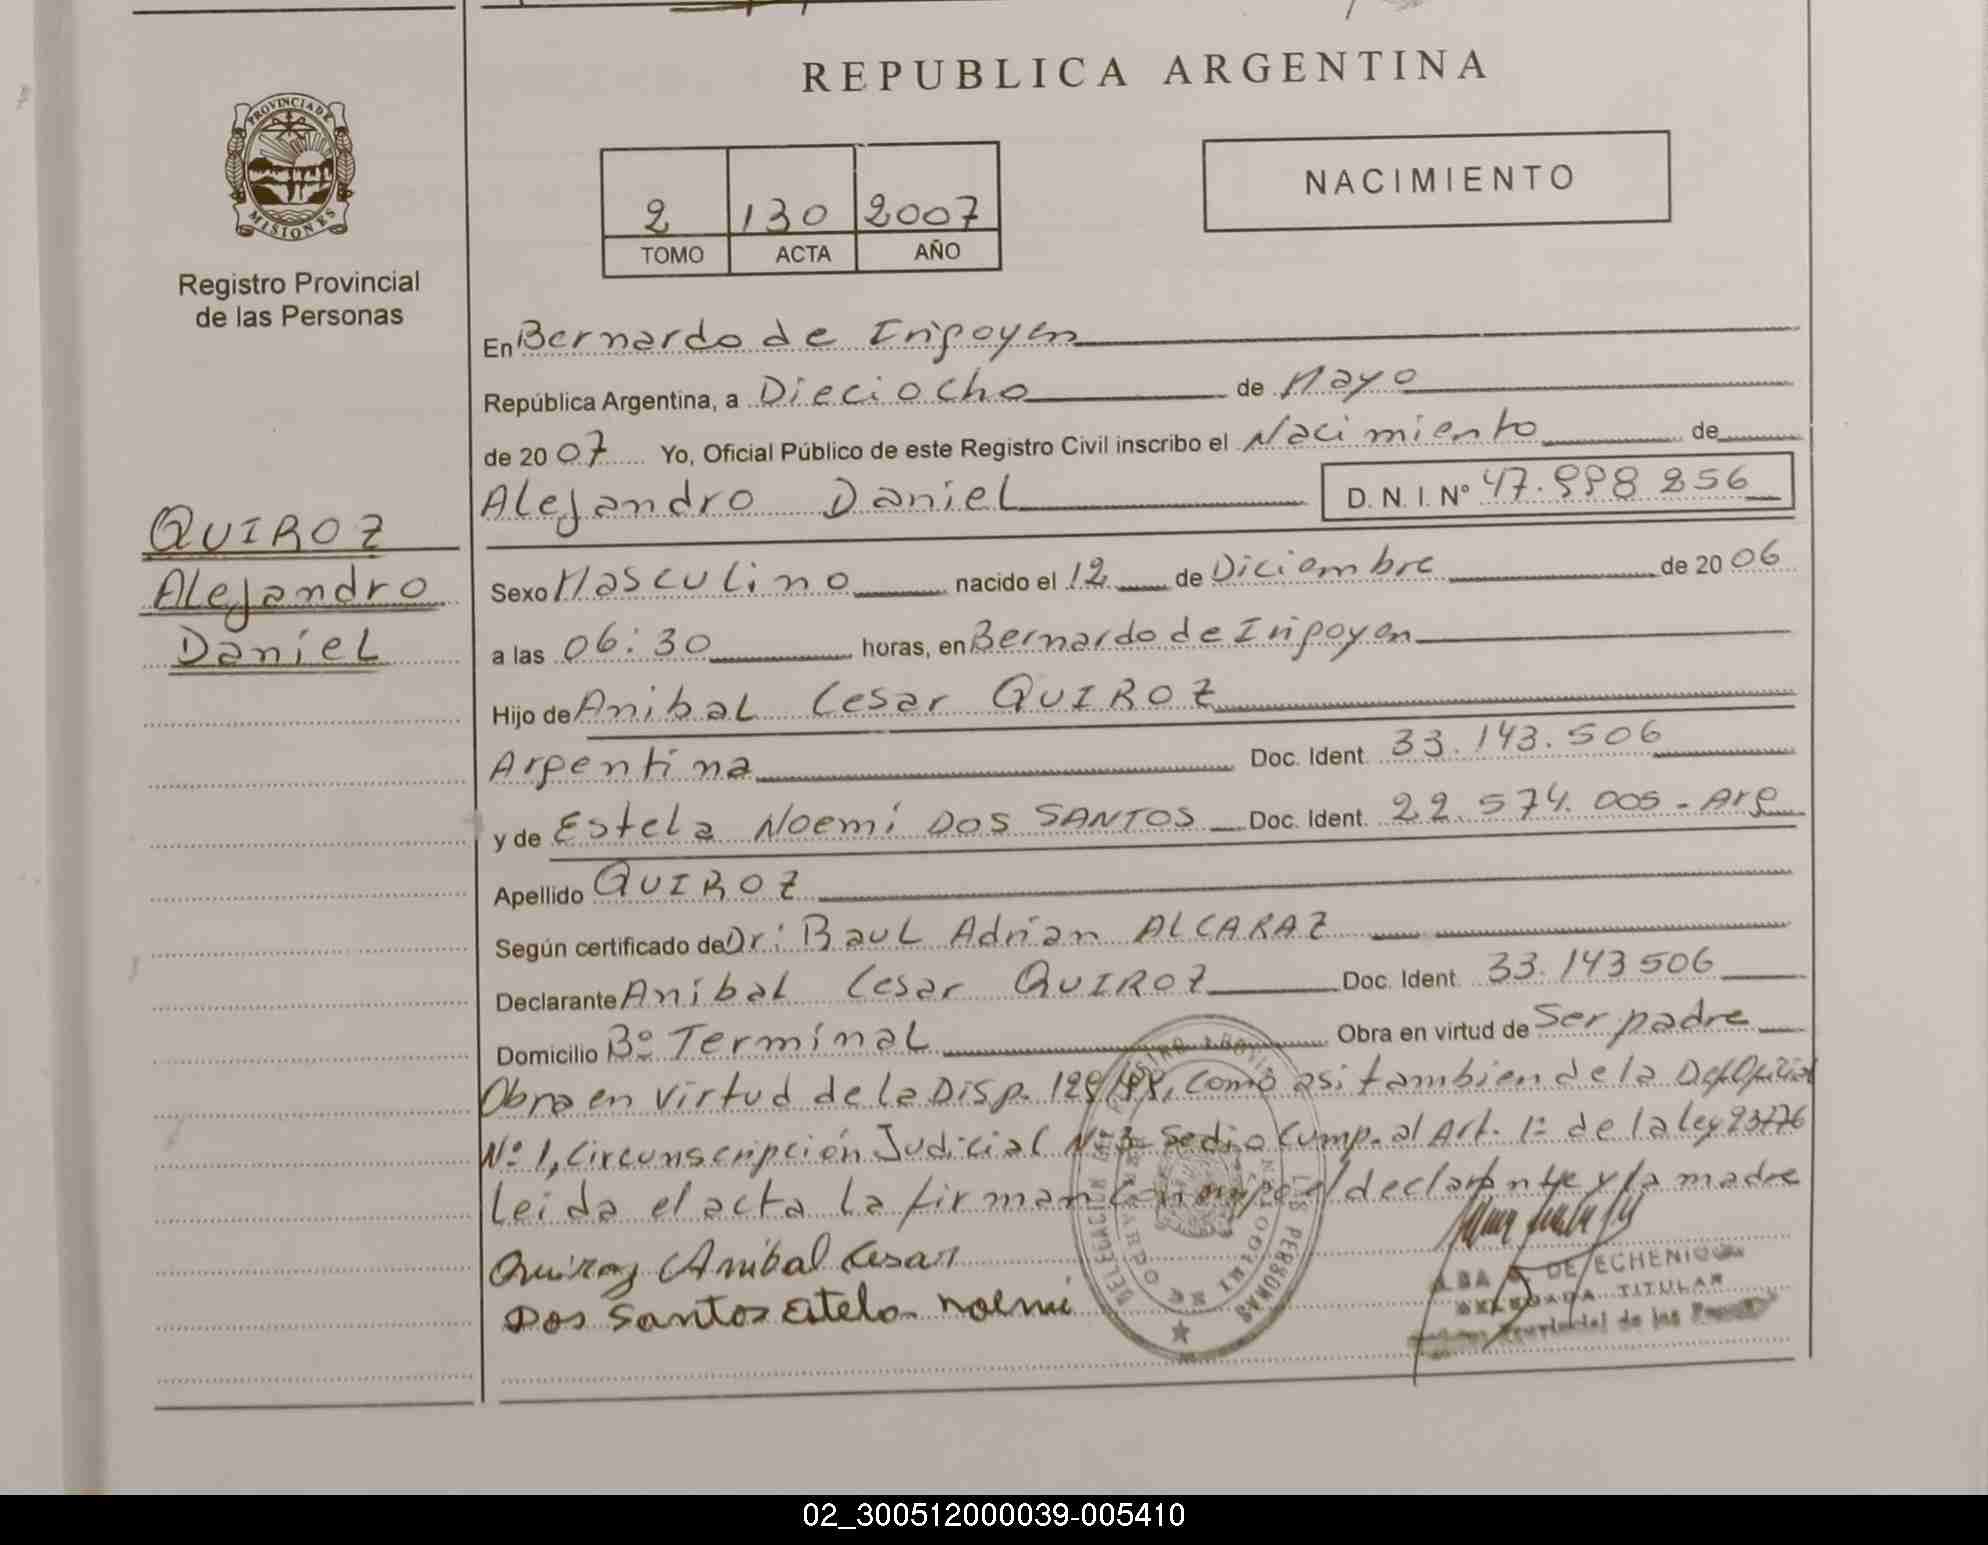 PROVINCIA DE
MISIONES
Registro Provincial
de las Personas
QUIROZ
Alejandro
Daniel
REPUBLICA ARGENTINA
2 130 2007
TOMO ACTA AÑO
NACIMIENTO
En Bernardo de Irigoyen
República Argentina, a Dieciocho de Mayo
de 2007 Yo, Oficial Público de este Registro Civil inscribo el Nacimiento de
Alejandro Daniel D. N. I. Nº 47.998 856
Sexo Masculino nacido el 12 de Diciembre de 2006
a las 06:30 horas, en Bernardo de Irigoyen
Hijo de Anibal Cesar QUIROZ
Argentina Doc. Ident. 33.143.506
y de Estela Noemi DOS SANTOS Doc. Ident. 22 574. 005 - Arg
Apellido QUIROZ
Según certificado de Dr: Raul Adrian ALCARAZ
Declarante Anibal Cesar QUIROZ Doc. Ident. 33.143506
Domicilio Bº Terminal Obra en virtud de Ser padre
Obra en virtud de la Disp. como asi tambien de la Def Oficial
Nº 1, Circunscripción Judicial Nº 3 Sedio Cump. al Art. 1º de la ley 23776
Leida el acta la firman conmigo el declarante y la madre
Quiroz Anibal Cesar
Dos Santos Estela Noemi
DE ECHENIQUE
DELEGADA TITULAR
Provincial de las
DELEGACION
BERNARDO DE IRIGOYEN
PERSONAS
02_300512000039-005410